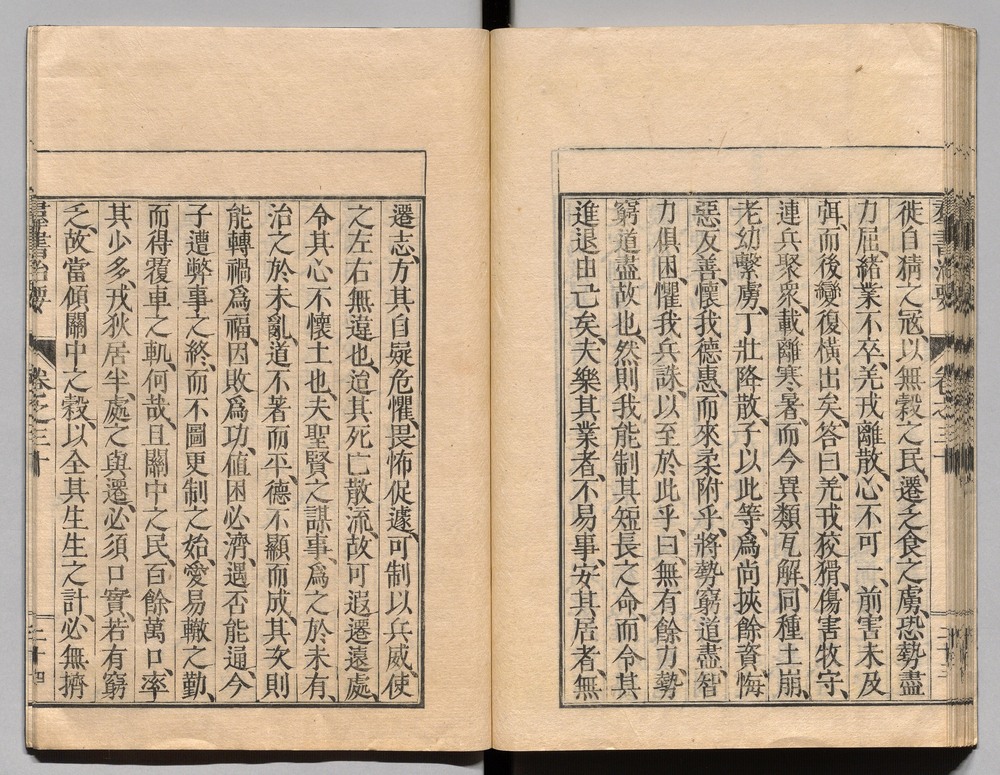 徙自猜之冦以無穀之民遷乏食之虜恐勢盡
力屈緒業不卒羌戎離散心不可一前害未及
弭而後變復橫出矣答曰羌戎狡猾傷害牧守
連兵聚衆載離寒暑而今異類瓦解同種土崩
老幼繫虜丁壯降散子以此等爲尚挾餘資悔
惡反善懷我德惠而來柔附乎將勢窮道盡智
力俱困懼我兵誅以至於此乎曰無有餘力勢
窮道盡故也然則我能制其短長之命而令其
進退由己矣夫樂其業者不易事安其居者無
遷志方其自疑危懼畏怖促遽可制以兵威使
之左右無違也迨其死亡散流故可遐遷遠處
令其心不懷土也夫聖賢之謀事爲之於未有
治之於未亂道不著而平德不顯而成其次則
能轉禍爲福因敗爲功值困必濟遇否能通今
子遭弊事之終而不圖更制之始愛易轍之勤
而得覆車之軌何哉且關中之民百餘萬口率
其少多戎狄居半處之與遷必須口實若有窮
乏故當傾關中之穀以全其生生之計必無擠
群書治要 卷之三十 二十四